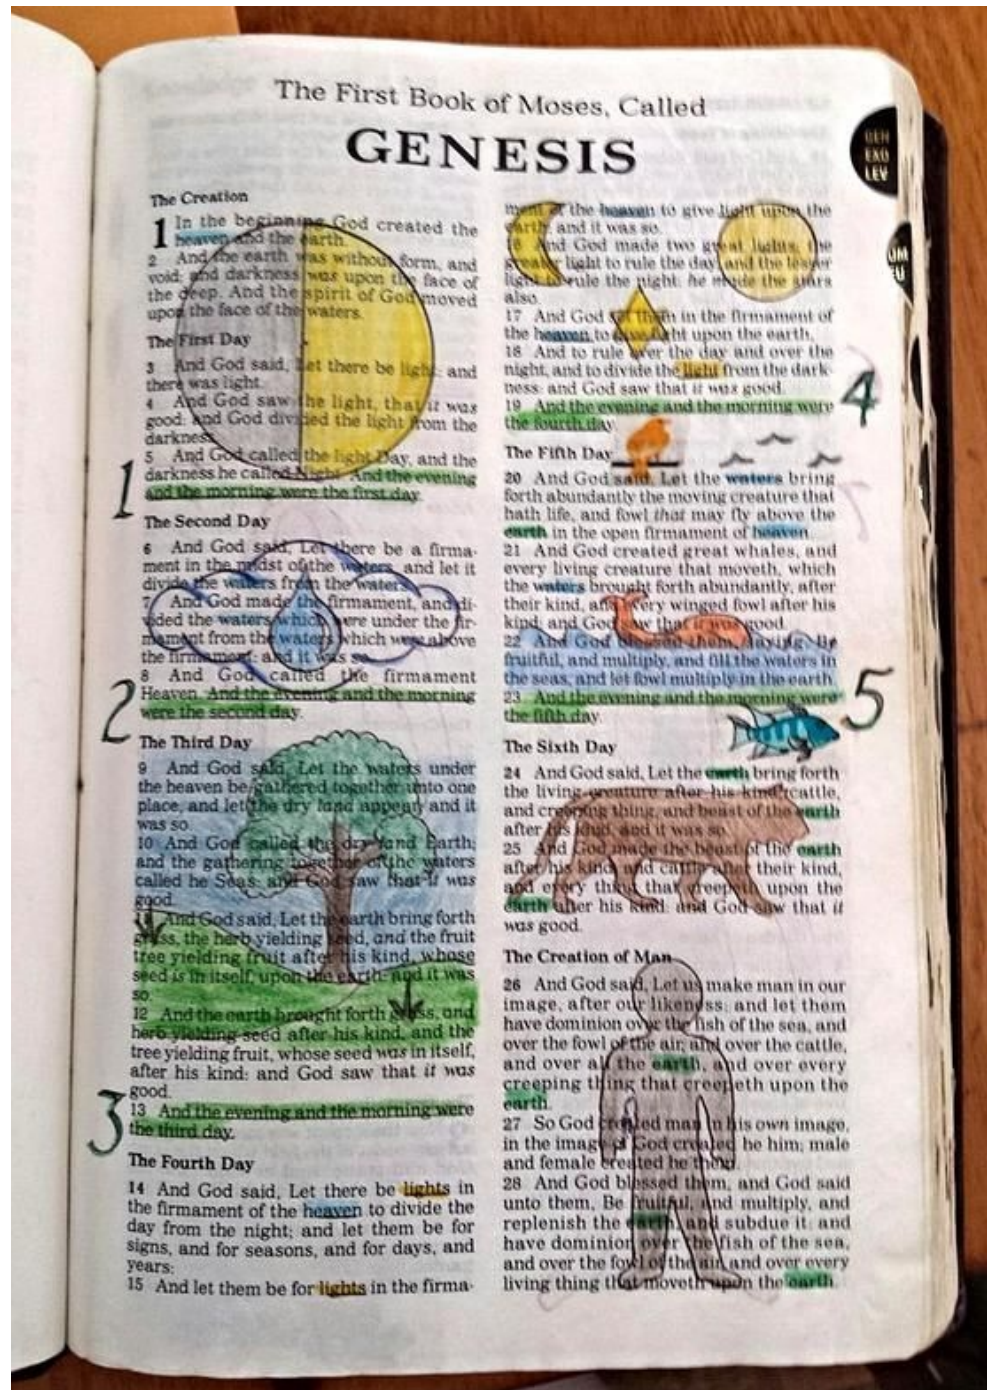 The First Book of Moses, Called
GENESIS
The Creation
1 In the beginning God created the
heaven and the earth.
2 And the earth was without form, and
void; and darkness was upon the face of
the deep. And the spirit of God moved
upon the face of the waters.
The First Day
3 And God said, Let there be light: and
there was light.
4 And God saw the light, that it was
good: and God divided the light from the
darkness.
1
5 And God called the light Day, and the
darkness he called Night. And the evening
and the morning were the first day.
The Second Day
6 And God said, Let there be a firma-
ment in the midst of the waters, and let it
divide the waters from the waters.
7 And God made the firmament, and di-
vided the waters which were under the fir-
mament from the waters which were above
the firmament: and it was so.
2
8 And God called the firmament
Heaven. And the evening and the morning
were the second day.
The Third Day
9 And God said, Let the waters under
the heaven be gathered together unto one
place, and let the dry land appear: and it
was so.
10 And God called the dry land Earth;
and the gathering together of the waters
called he Seas: and God saw that it was
good.
11 And God said, Let the earth bring forth
grass, the herb yielding seed, and the fruit
tree yielding fruit after his kind, whose
seed is in itself, upon the earth: and it was
so.
12 And the earth brought forth grass, and
herb yielding seed after his kind, and the
tree yielding fruit, whose seed was in itself,
after his kind: and God saw that it was
good.
3
13 And the evening and the morning were
the third day.
The Fourth Day
14 And God said, Let there be lights in
the firmament of the heaven to divide the
day from the night; and let them be for
signs, and for seasons, and for days, and
years:
15 And let them be for lights in the firma-
ment of the heaven to give light upon the
earth: and it was so.
16 And God made two great lights; the
greater light to rule the day, and the lesser
light to rule the night: he made the stars
also.
17 And God set them in the firmament of
the heaven to give light upon the earth,
18 And to rule over the day and over the
night, and to divide the light from the dark-
ness: and God saw that it was good.
4
19 And the evening and the morning were
the fourth day.
The Fifth Day
20 And God said, Let the waters bring
forth abundantly the moving creature that
hath life, and fowl that may fly above the
earth in the open firmament of heaven.
21 And God created great whales, and
every living creature that moveth, which
the waters brought forth abundantly, after
their kind, and every winged fowl after his
kind: and God saw that it was good.
22 And God blessed them, saying, Be
fruitful, and multiply, and fill the waters in
the seas, and let fowl multiply in the earth.
5
23 And the evening and the morning were
the fifth day.
The Sixth Day
24 And God said, Let the earth bring forth
the living creature after his kind, cattle,
and creeping thing, and beast of the earth
after his kind: and it was so.
25 And God made the beast of the earth
after his kind, and cattle after their kind,
and every thing that creepeth upon the
earth after his kind: and God saw that it
was good.
The Creation of Man
26 And God said, Let us make man in our
image, after our likeness: and let them
have dominion over the fish of the sea, and
over the fowl of the air, and over the cattle,
and over all the earth, and over every
creeping thing that creepeth upon the
earth.
27 So God created man in his own image,
in the image of God created he him; male
and female created he them.
28 And God blessed them, and God said
unto them, Be fruitful, and multiply, and
replenish the earth, and subdue it: and
have dominion over the fish of the sea,
and over the fowl of the air, and over every
living thing that moveth upon the earth.
GEN
EXO
LEV